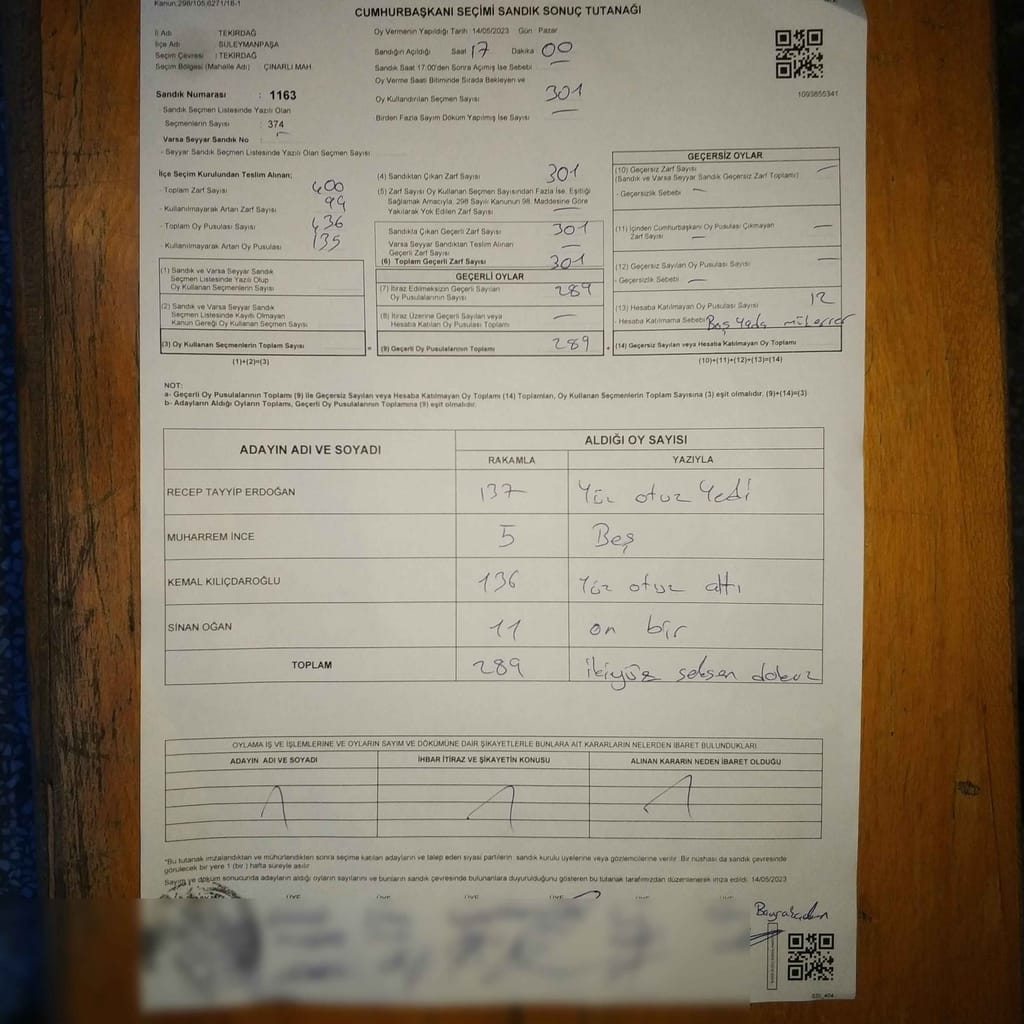 Kanun:298/105,6271/18-1
CUMHURBAŞKANI SEÇİMİ SANDIK SONUÇ TUTANAĞI
İl Adı TEKİRDAĞ
İlçe Adı SULEYMANPAŞA
Seçim Çevresi : TEKİRDAĞ
Seçim Bölgesi (Mahalle Adı) : ÇINARLI MAH
Sandık Numarası : 1163
- Sandık Seçmen Listesinde Yazılı Olan
Seçmenlerin Sayısı : 374
Varsa Seyyar Sandık No :
- Seyyar Sandık Seçmen Listesinde Yazılı Olan Seçmen Sayısı
Oy Vermenin Yapıldığı Tarih 14/05/2023 Gün Pazar
Sandığın Açıldığı Saat 17 Dakika 00
Sandık Saat 17.00'den Sonra Açımış İse Sebebi
Oy Verme Saati Bitiminde Sırada Bekleyen ve
Oy Kullandırılan Seçmen Sayısı 301
Birden Fazla Sayım Döküm Yapılmış İse Sayısı
1093855341
İlçe Seçim Kurulundan Teslim Alınan;
- Toplam Zarf Sayısı 400
- Kullanılmayarak Artan Zarf Sayısı 99
- Toplam Oy Pusulası Sayısı 436
- Kullanılmayarak Artan Oy Pusulası 135
(1) Sandık ve Varsa Seyyar Sandık
Seçmen Listesinde Yazılı Olup
Oy Kullanan Seçmenlerin Sayısı
(2) Sandık ve Varsa Seyyar Sandık
Seçmen Listesinde Kayıtlı Olmayan
Kanun Gereği Oy Kullanan Seçmen Sayısı
(3) Oy Kullanan Seçmenlerin Toplam Sayısı
(1)+(2)=(3)
(4) Sandıktan Çıkan Zarf Sayısı 301
(5) Zarf Sayısı Oy Kullanan Seçmen Sayısından Fazla İse, Eşitliği
Sağlamak Amacıyla, 298 Sayılı Kanunun 98. Maddesine Göre
Yakılarak Yok Edilen Zarf Sayısı —
Sandıkta Çıkan Geçerli Zarf Sayısı 301
Varsa Seyyar Sandıktan Teslim Alınan
Geçerli Zarf Sayısı —
(6) Toplam Geçerli Zarf Sayısı 301
GEÇERLİ OYLAR
(7) İtiraz Edilmeksizin Geçerli Sayılan
Oy Pusulalarının Sayısı 289
(8) İtiraz Üzerine Geçerli Sayılan veya
Hesaba Katılan Oy Pusulası Toplamı —
(9) Geçerli Oy Pusulalarının Toplamı 289
GEÇERSİZ OYLAR
(10) Geçersiz Zarf Sayısı —
(Sandık ve Varsa Seyyar Sandık Geçersiz Zarf Toplamı)
- Geçersizlik Sebebi —
(11) İçinden Cumhurbaşkanı Oy Pusulası Çıkmayan —
Zarf Sayısı —
(12) Geçersiz Sayılan Oy Pusulası Sayısı —
- Geçersizlik Sebebi —
(13) Hesaba Katılmayan Oy Pusulası Sayısı 12
- Hesaba Katılmama Sebebi Boş yada mükerrer
(14) Geçersiz Sayılan veya Hesaba Katılmayan Oy Toplamı
(10)+(11)+(12)+(13)=(14)
NOT:
a- Geçerli Oy Pusulalarının Toplamı (9) ile Geçersiz Sayılan veya Hesaba Katılmayan Oy Toplamı (14) Toplamları, Oy Kullanan Seçmenlerin Toplam Sayısına (3) eşit olmalıdır. (9)+(14)=(3)
b- Adayların Aldığı Oyların Toplamı, Geçerli Oy Pusulalarının Toplamına (9) eşit olmalıdır.
ADAYIN ADI VE SOYADI ALDIĞI OY SAYISI
RAKAMLA YAZIYLA
RECEP TAYYİP ERDOĞAN 137 Yüz otuz Yedi
MUHARREM İNCE 5 Beş
KEMAL KILIÇDAROĞLU 136 Yüz otuz altı
SİNAN OĞAN 11 on bir
TOPLAM 289 ikiyüz seksen dokuz
OYLAMA İŞ VE İŞLEMLERİNE VE OYLARIN SAYIM VE DÖKÜMÜNE DAİR ŞİKAYETLERLE BUNLARA AİT KARARLARIN NELERDEN İBARET BULUNDUKLARI
ADAYIN ADI VE SOYADI İHBAR İTİRAZ VE ŞİKAYETİN KONUSU ALINAN KARARIN NEDEN İBARET OLDUĞU
*Bu tutanak imzalandıktan ve mühürlendikten sonra seçime katılan adayların ve talep eden siyasi partilerin sandık kurulu üyelerine veya gözlemcilerine verilir. Bir nüshası da sandık çevresinde
görülecek bir yere 1 (bir) hafta süreyle asılır
Sayım ve döküm sonucunda adayların aldığı oyların sayılarını ve bunların sandık çevresinde bulunanlara duyurulduğunu gösteren bu tutanak tarafımızdan düzenlenerek imza edildi. 14/05/2023
ÜYE ÜYE ÜYE ÜYE ÜYE